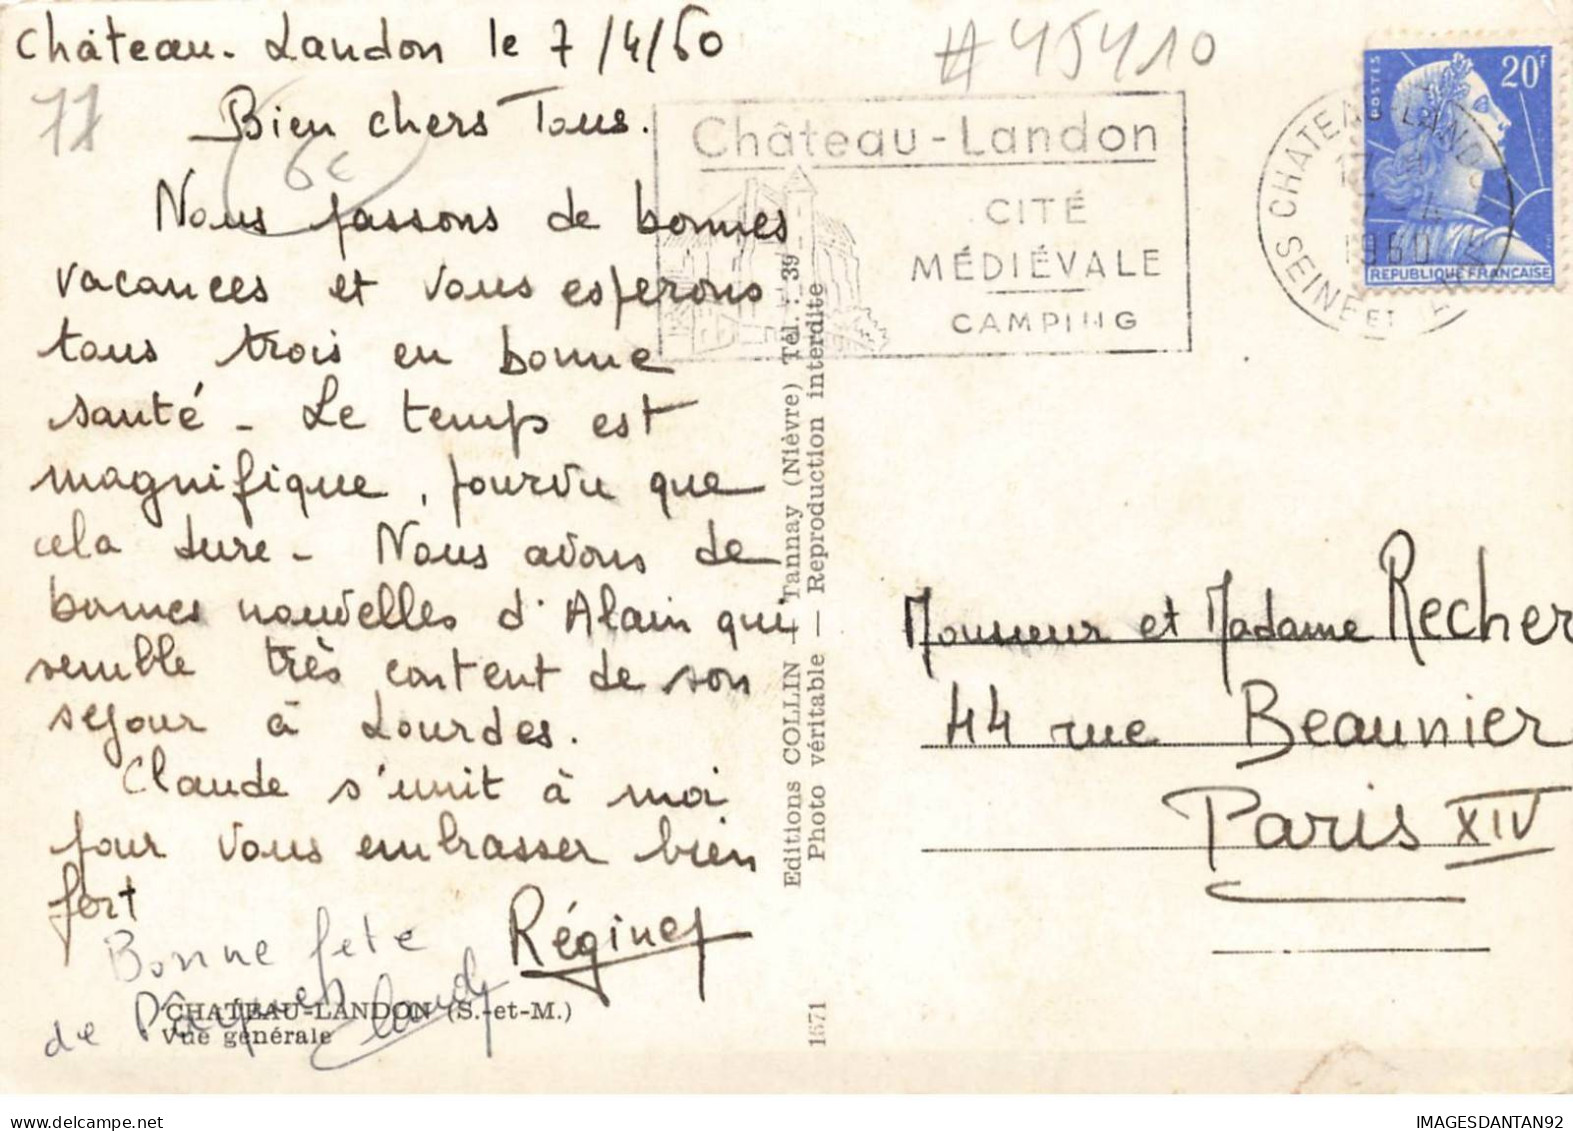 Château-Landon le 7/4/60
# 45410
77
6c
Bien chers Tous.
Nous passons de bonnes
vacances et vous esperons
tous trois en bonne
santé - Le temps est
magnifique, pourvu que
cela dure - Nous avons de
bonnes nouvelles d'Alain qui
semble très content de son
séjour à Lourdes.
Claude s'unit à moi
pour vous embrasser bien
fort
Régine
Bonne fete
de Paques
CHATEAU-LANDON (S.-et-M.)
Vue générale
Editions COLLIN — Tannay (Nièvre) Tél. : 39
Photo véritable — Reproduction interdite
1671
Château-Landon
CITÉ
MÉDIÉVALE
CAMPING
CHATEAU-LANDON
7-4
1960
SEINE ET M
POSTES
20F
REPUBLIQUE FRANÇAISE
Monsieur et Madame Recher
44 rue Beaunier
Paris XIV
IMAGESDANTAN92